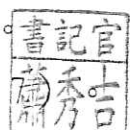 書記官
蕭秀吉